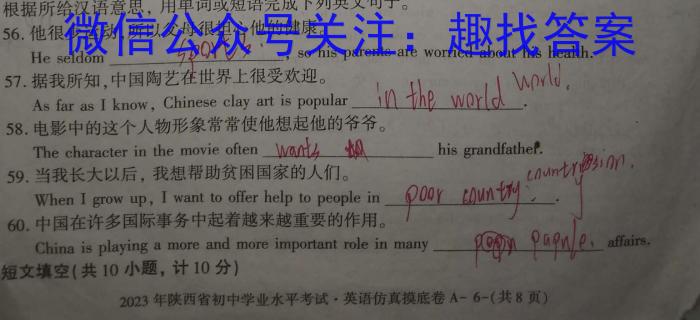 根据所给汉语意思，用单词或短语完成下列英文句子。
56. 他很少运动，所以父母很担心他的健康。
微信公众号关注：趣找答案
He seldom sports, so his parents are worried about his health.
57. 据我所知，中国陶艺在世界上很受欢迎。 world.
As far as I know, Chinese clay art is popular in the world.
58. 电影中的这个人物形象常常使他想起他的爷爷。
The character in the movie often wants his grandfather.
59. 当我长大以后，我想帮助贫困国家的人们。
When I grow up, I want to offer help to people in poor country.
60. 中国在许多国际事务中起着越来越重要的作用。
China is playing a more and more important role in many affairs.
短文填空（共 10 小题，计 10 分）
2023 年陕西省初中学业水平考试·英语仿真摸底卷 A- 6-(共 8 页)